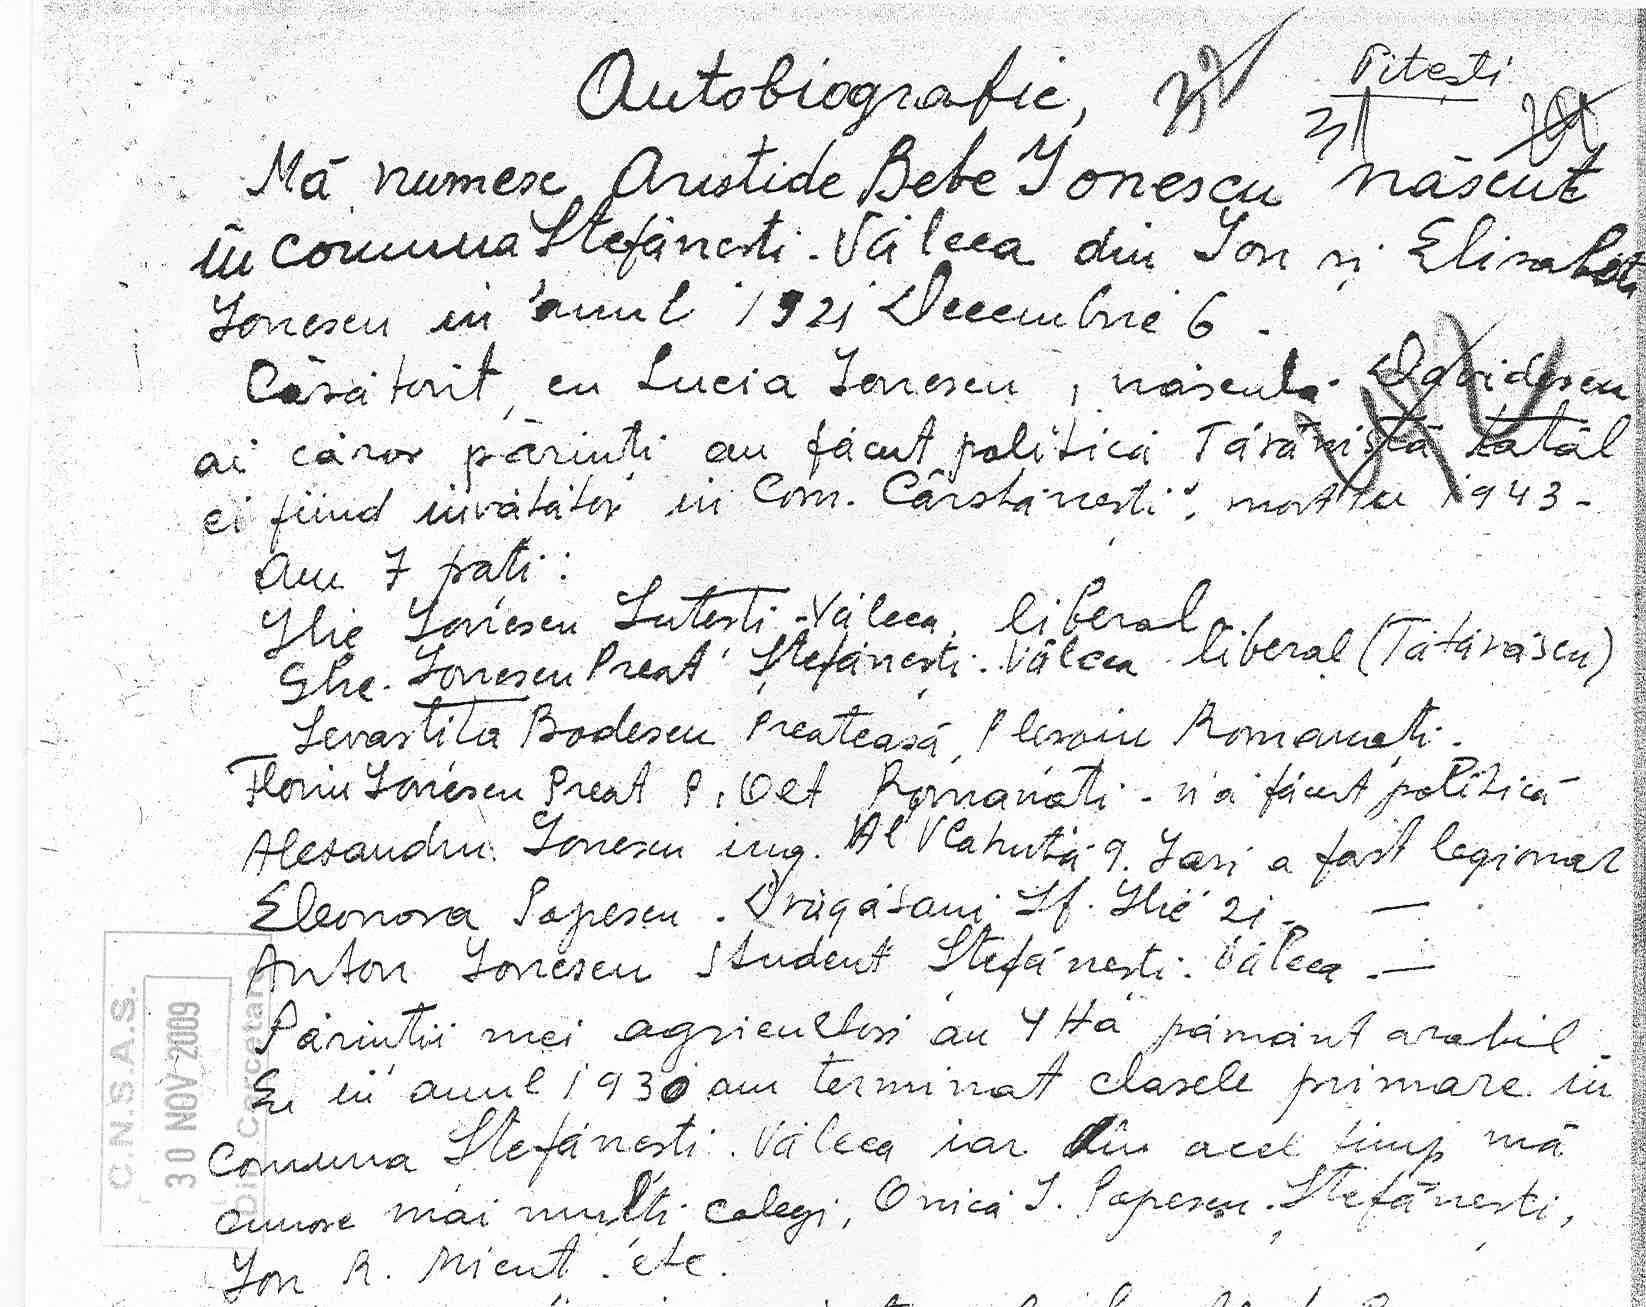 Autobiografie,
Pitești
31
Mă numesc Aristide Bebe Ionescu născut
în comuna Ștefănești - Vâlcea din Ion și Elisabeta
Ionescu în anul 1921 Decembrie 6 -
Căsătorit cu Lucia Ionescu, născută Davidescu
ai căror părinți au făcut politică Tărănistă tatăl
ei fiind învătător în Com. Cârstănești, mort în 1943 -
Am 7 frati:
Ilie Ionescu Sutesti - Vâlcea, liberal
Ghe. Ionescu Preot Ștefănești - Vâlcea liberal (Tătărăscu)
Sevastita Bodescu Preoteasă, Plesoiu Romanati.
Floriu Ionescu Preot P. Olt Romanati - n'a făcut politică
Alesandru Ionescu ing. Al Vlahută 9. Iasi a fost legionar
Eleonora Popescu - Drăgăsani Sf. Ilie 21 - —
Anton Ionescu student Ștefănești - Vâlcea - —
Părintii mei agricultori au 4 Ha pământ arabil
Eu în anul 1930 am terminat clasele primare în
Comuna Stefănesti - Vâlcea iar din acel timp mă
cunosc mai multi colegi, Onică I. Popescu - Stefănesti,
Ion R. Nicut. etc.
C.N.S.A.S.
30 NOV 2009
Dir. Cercetare